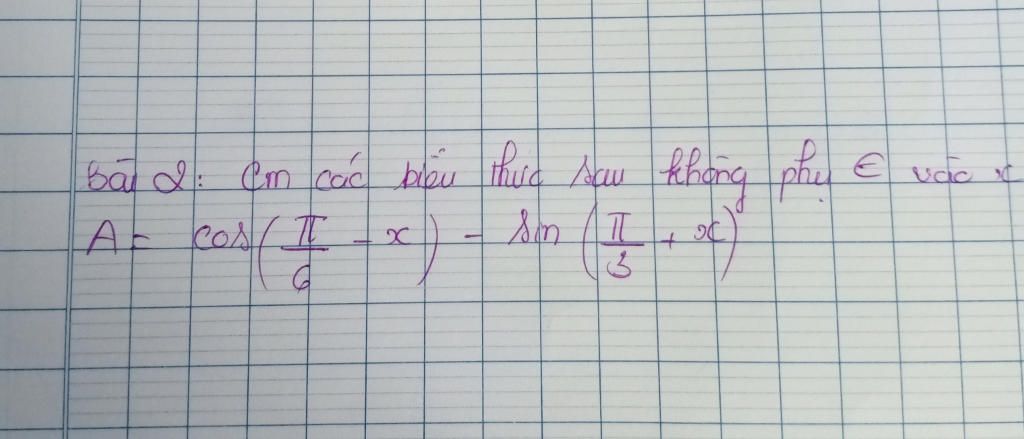 Bài 2: Cm các biểu thức sau không phụ ∈ vào x
A = cos(π/6 - x) - sin(π/3 + x)